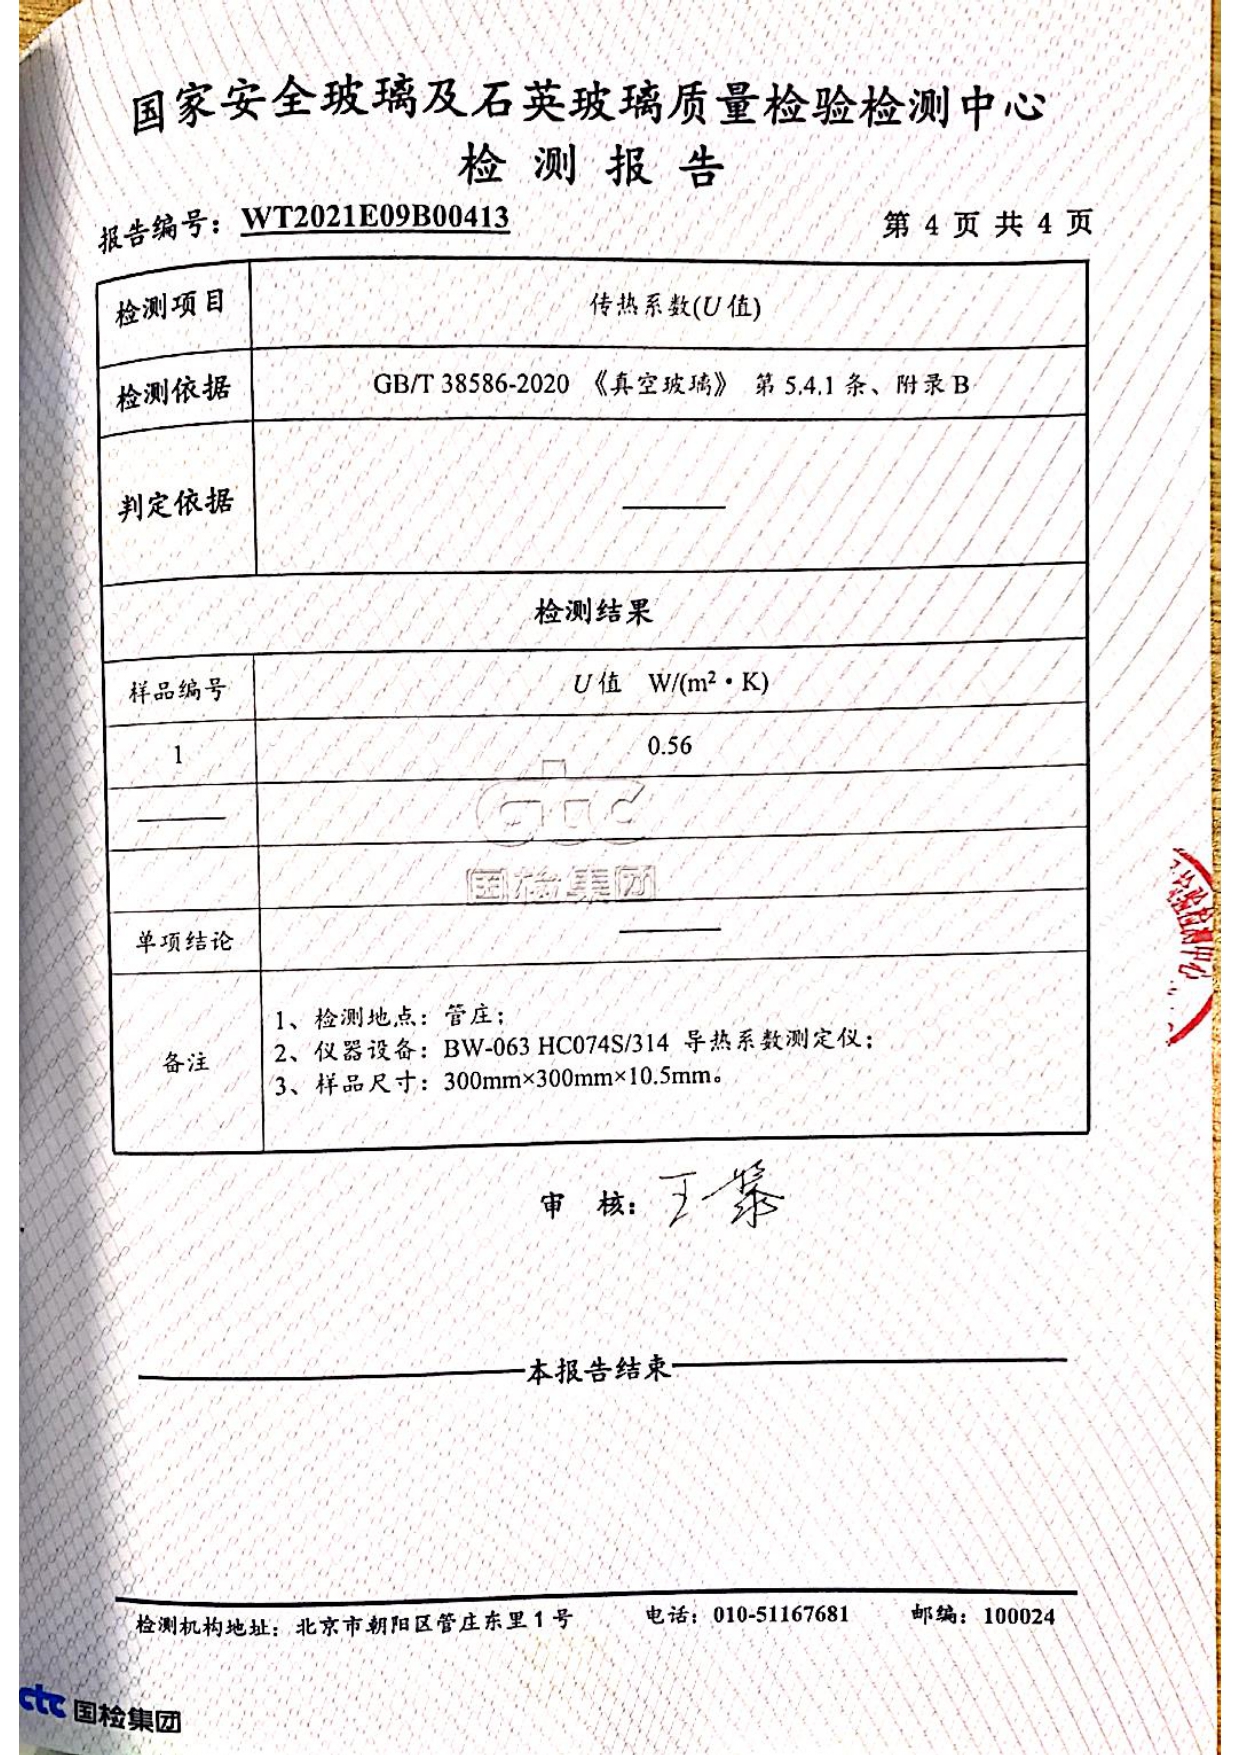 国家安全玻璃及石英玻璃质量检验检测中心
检测报告
报告编号：WT2021E09B00413 第 4 页 共 4 页
检测项目 传热系数(U 值)
检测依据 GB/T 38586-2020 《真空玻璃》 第 5.4.1 条、附录 B
判定依据 ——
检测结果
样品编号 U 值 W/(m²·K)
1 0.56
——
ctc
国检集团
单项结论 ——
备注
1、检测地点：管庄；
2、仪器设备：BW-063 HC074S/314 导热系数测定仪；
3、样品尺寸：300mm×300mm×10.5mm。
审 核：王
本报告结束
检测机构地址：北京市朝阳区管庄东里 1 号 电话：010-51167681 邮编：100024
ctc 国检集团